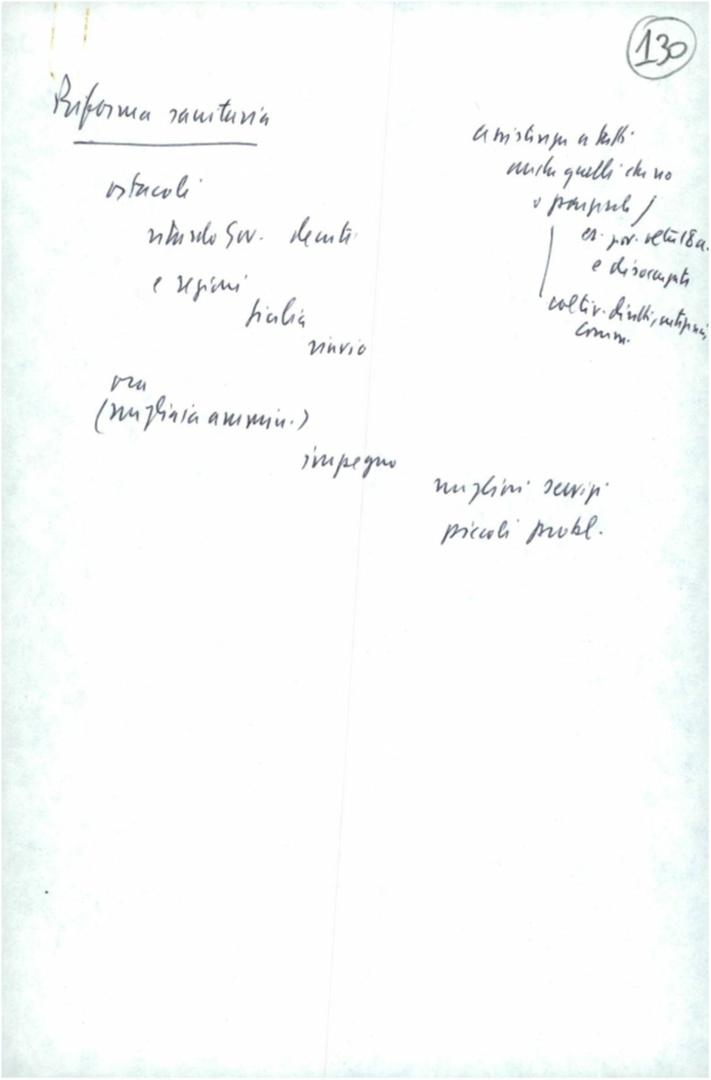 130
Riforma sanitaria
ostacoli
ritardo Gov. decreti
e regioni
Sicilia
rinvio
ora
(migliaia ammin.)
impegno
assistenza a tutti
anche quelli che no
o parzial
es. giov. oltre 18 a.
e disoccupati
coltiv. diretti, artigiani,
comm.
migliori servizi
piccoli probl.